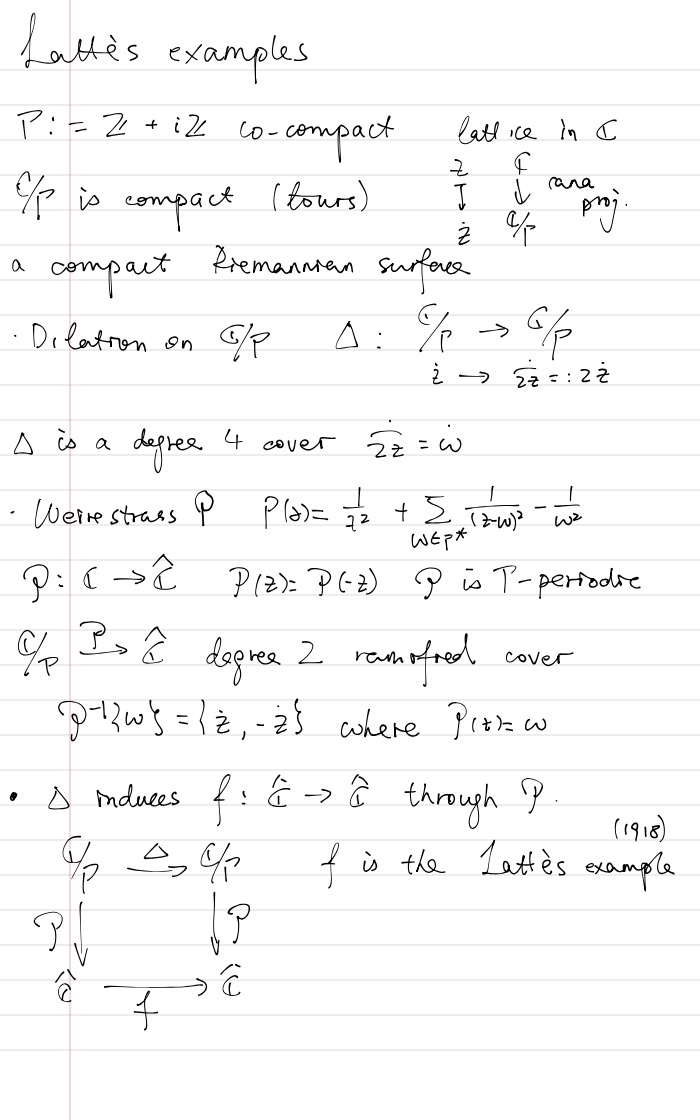 Lattès examples
P := ℤ + iℤ co-compact lattice in ℂ
ℂ/P is compact (tours) z ↦ ż ℂ ↓ ℂ/P cana proj.
a compact Riemannian surface
· Dilation on ℂ/P Δ : ℂ/P → ℂ/P
ż → \dot{\overline{2z}} =: 2ż
Δ is a degree 4 cover \dot{\overline{2z}} = ẇ
· Weirestrass ℘ P(z) = 1/z² + ∑_{w∈P*} 1/(z-w)² - 1/w²
℘ : ℂ → Ĉ P(z) = P(-z) ℘ is P-periodic
ℂ/P →^{P} Ĉ degree 2 ramified cover
℘⁻¹{w} = {ż, -ż} where P(z) = w
• Δ induces f : Ĉ → Ĉ through ℘.
(1918)
ℂ/P →^{Δ} ℂ/P f is the Lattès example
℘ ↓ ↓ ℘
Ĉ →_{f} Ĉ